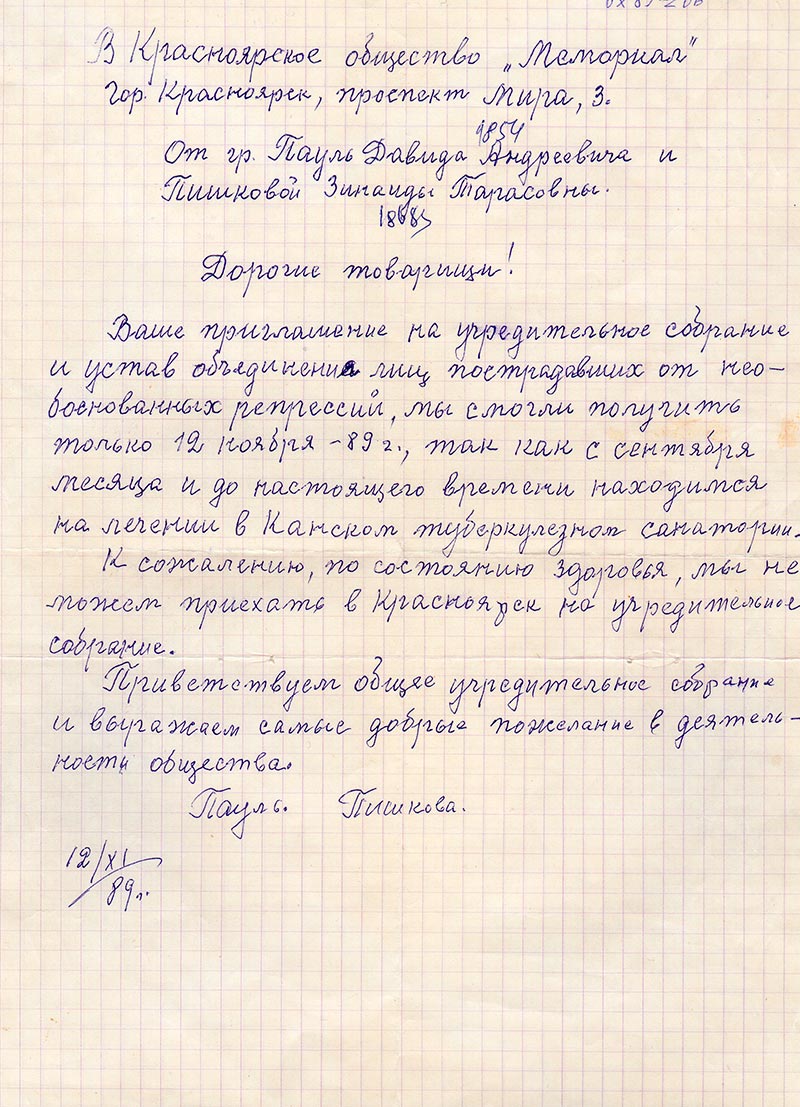 В Красноярское общество „Мемориал"
Гор. Красноярск, проспект Мира, 3.
9854
От гр. Пауль Давида Андреевича и
Пишковой Зинаиды Тарасовны.
Дорогие товарищи!
Ваше приглашение на учредительное собрание
и устав объединения лиц пострадавших от нео-
боснованных репрессий, мы смогли получить
только 12 ноября -89 г., так как с сентября
месяца и до настоящего времени находимся
на лечении в Канском туберкулезном санатории.
К сожалению, по состоянию здоровья, мы не
можем приехать в Красноярск на учредительное
собрание.
Приветствуем общее учредительное собрание
и выражаем самые добрые пожелание в деятель-
ности общества.
Пауль. Пишкова.
12/XI
89г.